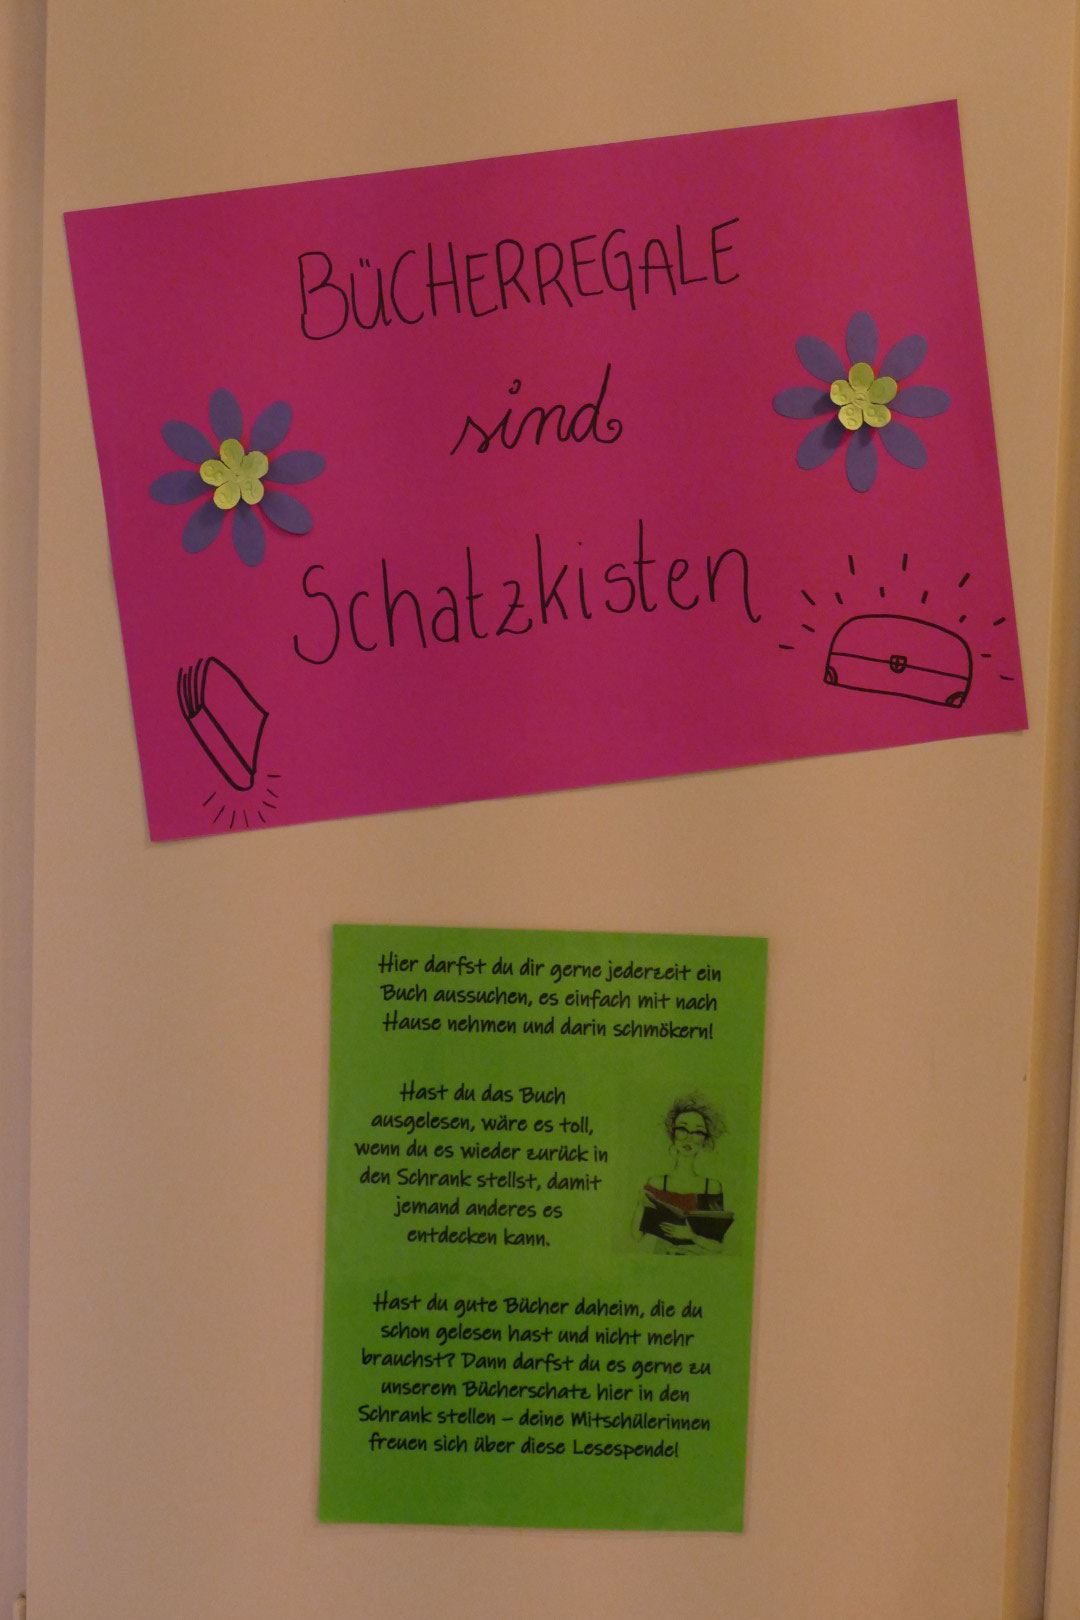 BÜCHERREGALE
sind
Schatzkisten
Hier darfst du dir gerne jederzeit ein
Buch aussuchen, es einfach mit nach
Hause nehmen und darin schmökern!
Hast du das Buch
ausgelesen, wäre es toll,
wenn du es wieder zurück in
den Schrank stellst, damit
jemand anderes es
entdecken kann.
Hast du gute Bücher daheim, die du
schon gelesen hast und nicht mehr
brauchst? Dann darfst du es gerne zu
unserem Bücherschatz hier in den
Schrank stellen – deine Mitschülerinnen
freuen sich über diese Lesespende!